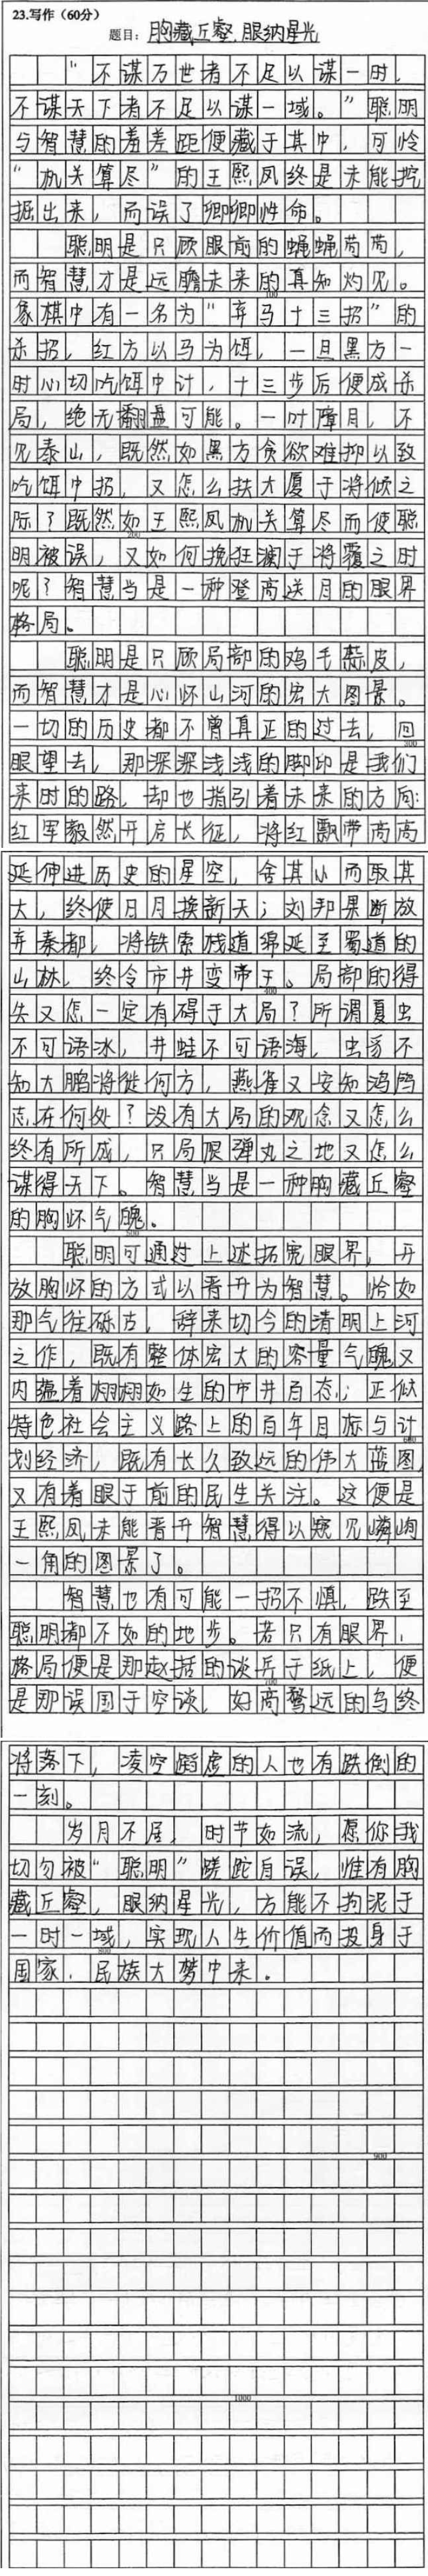 23.写作（60分）
题目：胸藏丘壑，眼纳星光
“不谋万世者不足以谋一时，
不谋天下者不足以谋一域。”聪明
与智慧的差距便藏于其中，可怜
“机关算尽”的王熙凤终是未能挖
掘出来，而误了卿卿性命。
聪明是只顾眼前的蝇蝇苟苟，
而智慧才是远瞻未来的真知灼见。
100
象棋中有一名为“弃马十三招”的
杀招，红方以马为饵，一旦黑方一
时心切吃饵中计，十三步后便成杀
局，绝无翻盘可能。一叶障目，不
见泰山，既然如黑方贪欲难抑以致
吃饵中招，又怎么扶大厦于将倾之
际？既然如王熙凤机关算尽而使聪
200
明被误，又如何挽狂澜于将覆之时
呢？智慧当是一种登高送目的眼界
格局。
聪明是只顾局部的鸡毛蒜皮，
而智慧才是心怀山河的宏大图景。
一切的历史都不曾真正的过去，回
300
眼望去，那深深浅浅的脚印是我们
来时的路，却也指引着未来的方向：
红军毅然开启长征，将红飘带高高
延伸进历史的星空，舍其小而取其
大，终使日月换新天；刘邦果断放
弃秦都，将铁索栈道绵延至蜀道的
山林，终令市井变帝王。局部的得
400
失又怎一定有碍于大局？所谓夏虫
不可语冰，井蛙不可语海，虫豸不
知大鹏将徙何方，燕雀又安知鸿鹄
志在何处？没有大局的观念又怎么
终有所成，只局限弹丸之地又怎么
谋得天下。智慧当是一种胸藏丘壑
的胸怀气魄。
500
聪明可通过上述拓宽眼界，开
放胸怀的方式以晋升为智慧。恰如
那气往砾古，辞来切今的清明上河
之作，既有整体宏大的容量气魄又
内蕴着栩栩如生的市井百态；正似
特色社会主义路上的百年目标与计
600
划经济，既有长久致远的伟大蓝图，
又有着眼于前的民生关注。这便是
王熙凤未能晋升智慧得以窥见嶙峋
一角的图景了。
智慧也有可能一招不慎，跌至
聪明都不如的地步。若只有眼界，
格局便是那赵括的谈兵于纸上，便
700
是那误国于空谈，好高骛远的鸟终
将落下，凌空蹈虚的人也有跌倒的
一刻。
岁月不居，时节如流，愿你我
切勿被“聪明”蹉跎自误，惟有胸
藏丘壑，眼纳星光，方能不拘泥于
一时一域，实现人生价值而投身于
800
国家，民族大梦中来。
900
1000